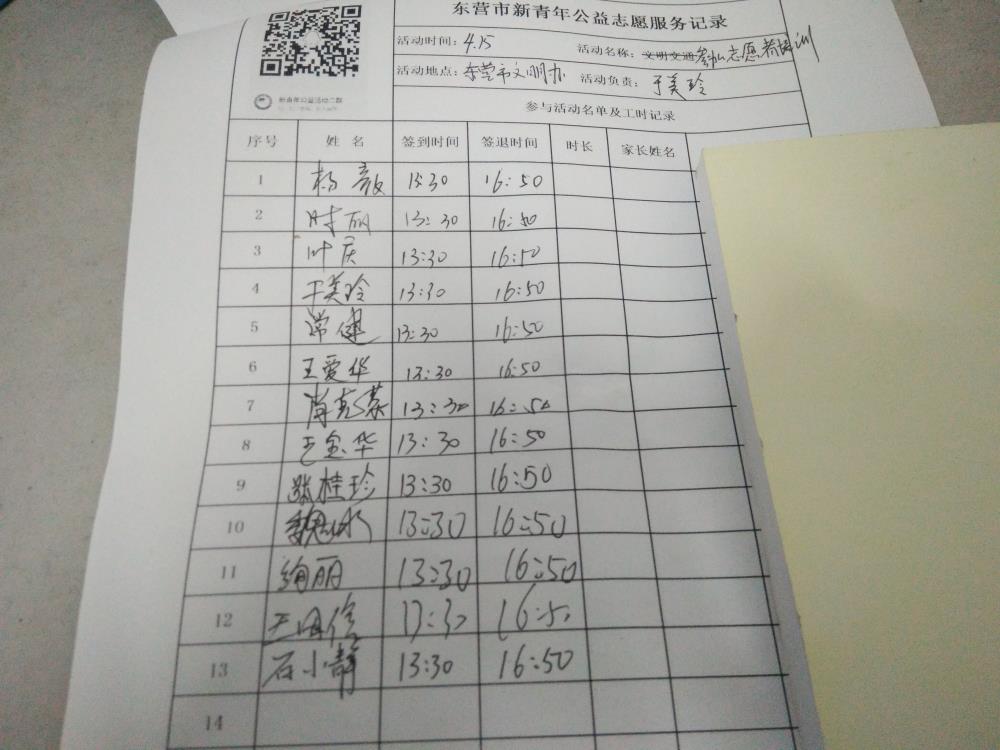 东营市新青年公益志愿服务记录
新青年公益活动二群
活动时间：4.15 活动名称：文明交通参加志愿者培训
活动地点：东营市文明办 活动负责：于美玲
参与活动名单及工时记录
序号 姓名 签到时间 签退时间 时长 家长姓名
1 杨毅 15:30 16:50
2 时丽 13:30 16:50
3 叶庆 13:30 16:50
4 于美玲 13:30 16:50
5 常健 13:30 16:50
6 王爱华 13:30 16:50
7 肖克荣 13:30 16:50
8 王金华 13:30 16:50
9 张桂珍 13:30 16:50
10 13:30 16:50
11 绚丽 13:30 16:50
12 13:30 16:50
13 石小静 13:30 16:50
14